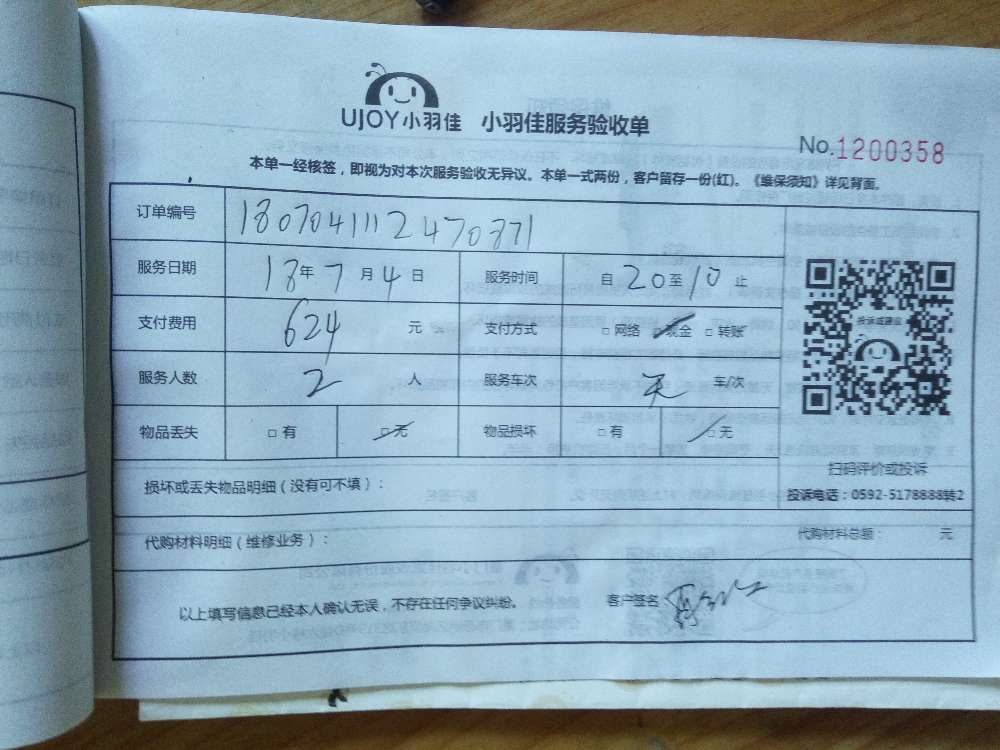 UJOY小羽佳 小羽佳服务验收单
No.1200358
本单一经核签，即视为对本次服务验收无异议。本单一式两份，客户留存一份(红)。《维保须知》详见背面。
订单编号 1807041112470871
服务日期 18年7月4日 服务时间 自20至10止
支付费用 624元 支付方式 □网络 □现金 □转账
投诉或建议
服务人数 2人 服务车次 无 车/次
物品丢失 □有 □无 物品损坏 □有 □无
扫码评价或投诉
损坏或丢失物品明细（没有可不填）：
投诉电话：0592-5178888转2
代购材料明细（维修业务）： 代购材料总额： 元
以上填写信息已经本人确认无误，不存在任何争议纠纷。 客户签名